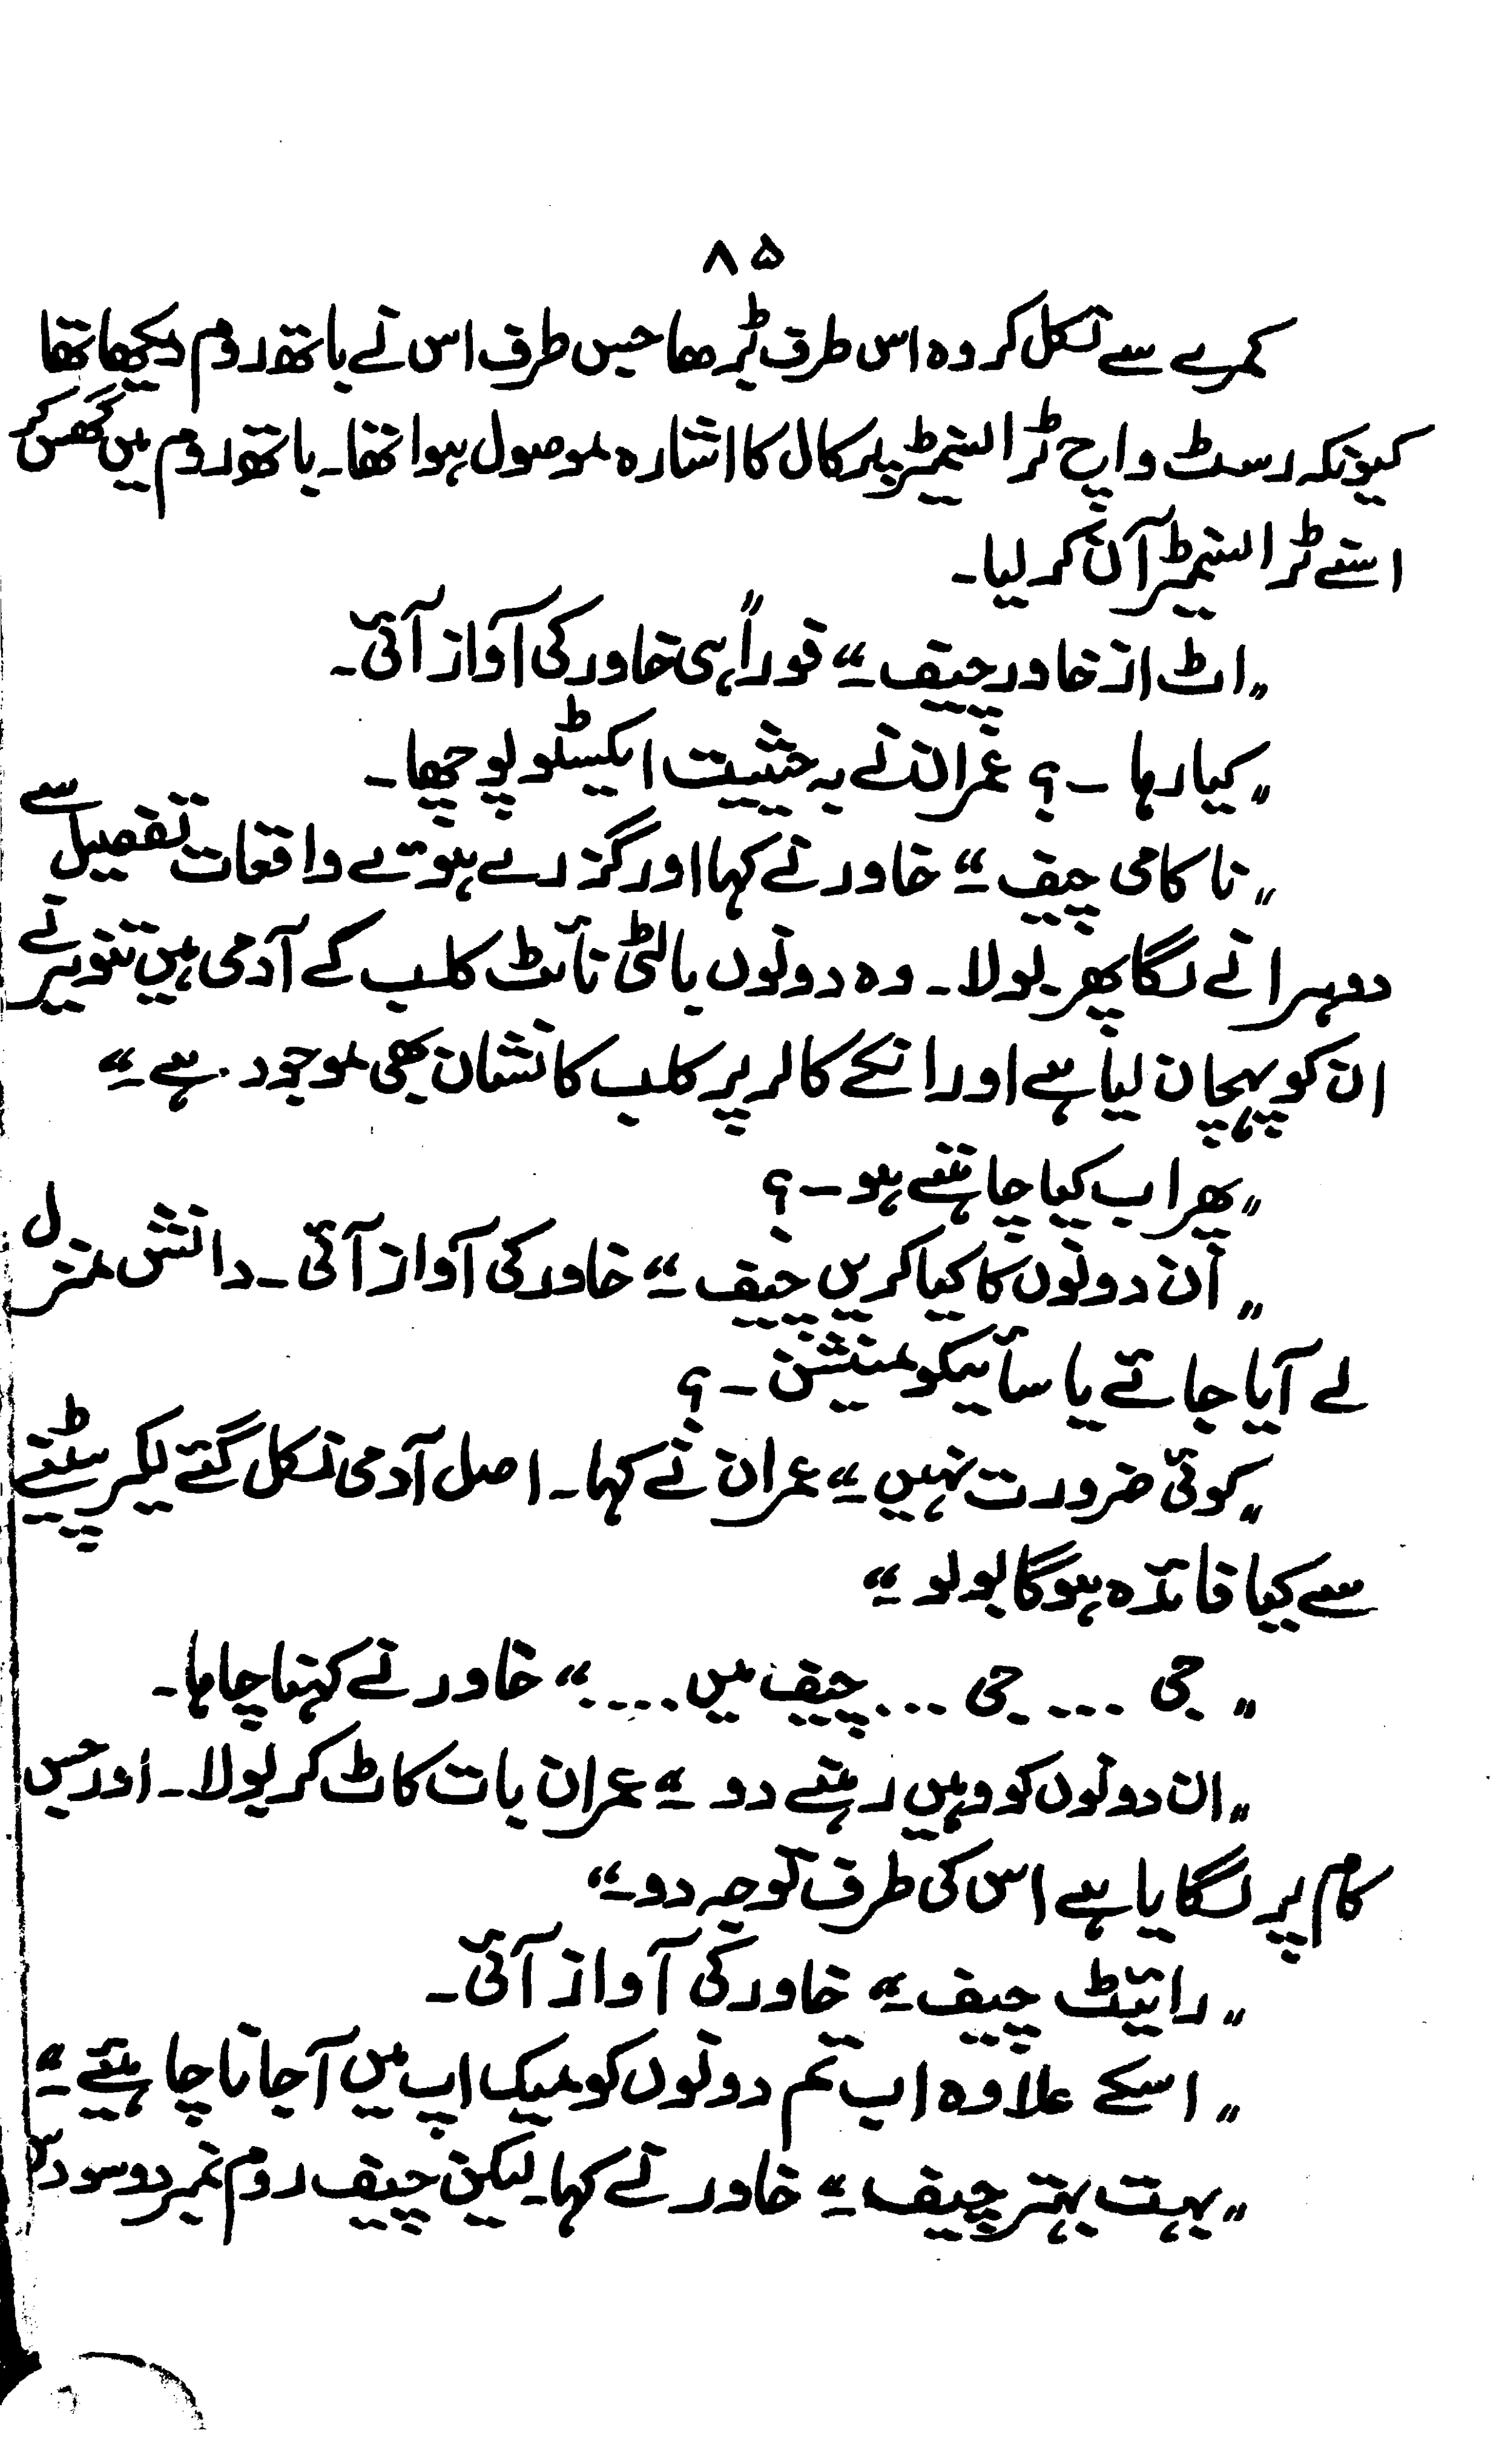 ۸۵
کمرے سے نکل کر وہ اس طرف بڑھا جس طرف اس نے باتھ روم دیکھا تھا
کیونکہ رسٹ واچ ٹرانسمیٹر پر کال کا اشارہ موصول ہوا تھا۔ باتھ روم میں گھس کر
اسنے ٹرانسمیٹر آن کر لیا۔
"اٹ از خاور چیف۔" فوراً ہی خاور کی آواز آئی۔
"کیا رہا ۔؟ عمران نے بہ حیثیت ایکسٹو پوچھا۔
"ناکامی چیف۔" خاور نے کہا اور گزرے ہوئے واقعات تفصیل سے
دوہرانے لگا پھر بولا۔ وہ دونوں بالٹی نائٹ کلب کے آدمی ہیں تنویر نے
ان کو پہچان لیا ہے اور انکے کالر پر کلب کا نشان بھی موجود ہے۔"
"پھر اب کیا چاہتے ہو۔؟
"اُن دونوں کا کیا کریں چیف۔" خاور کی آواز آئی۔ دانش منزل
لے آیا جائے یا سائیکو مینشن۔؟
"کوئی ضرورت نہیں۔" عمران نے کہا۔ اصل آدمی نکل گئے لیکر پیٹنے
سے کیا فائدہ ہو گا بولو۔"
"جی ... جی ... چیف میں ...." خاور نے کہنا چاہا۔
"ان دونوں کو وہیں رہنے دو۔" عمران بات کاٹ کر بولا۔ اور جس
کام پر لگایا ہے اس کی طرف توجہ دو۔"
"رائیٹ چیف۔" خاور کی آواز آئی۔
"اسکے علاوہ اب تم دونوں کو میک اپ میں آ جانا چاہئیے۔"
"بہت بہتر چیف۔" خاور نے کہا۔ لیکن چیف روم نمبر دو سو دس